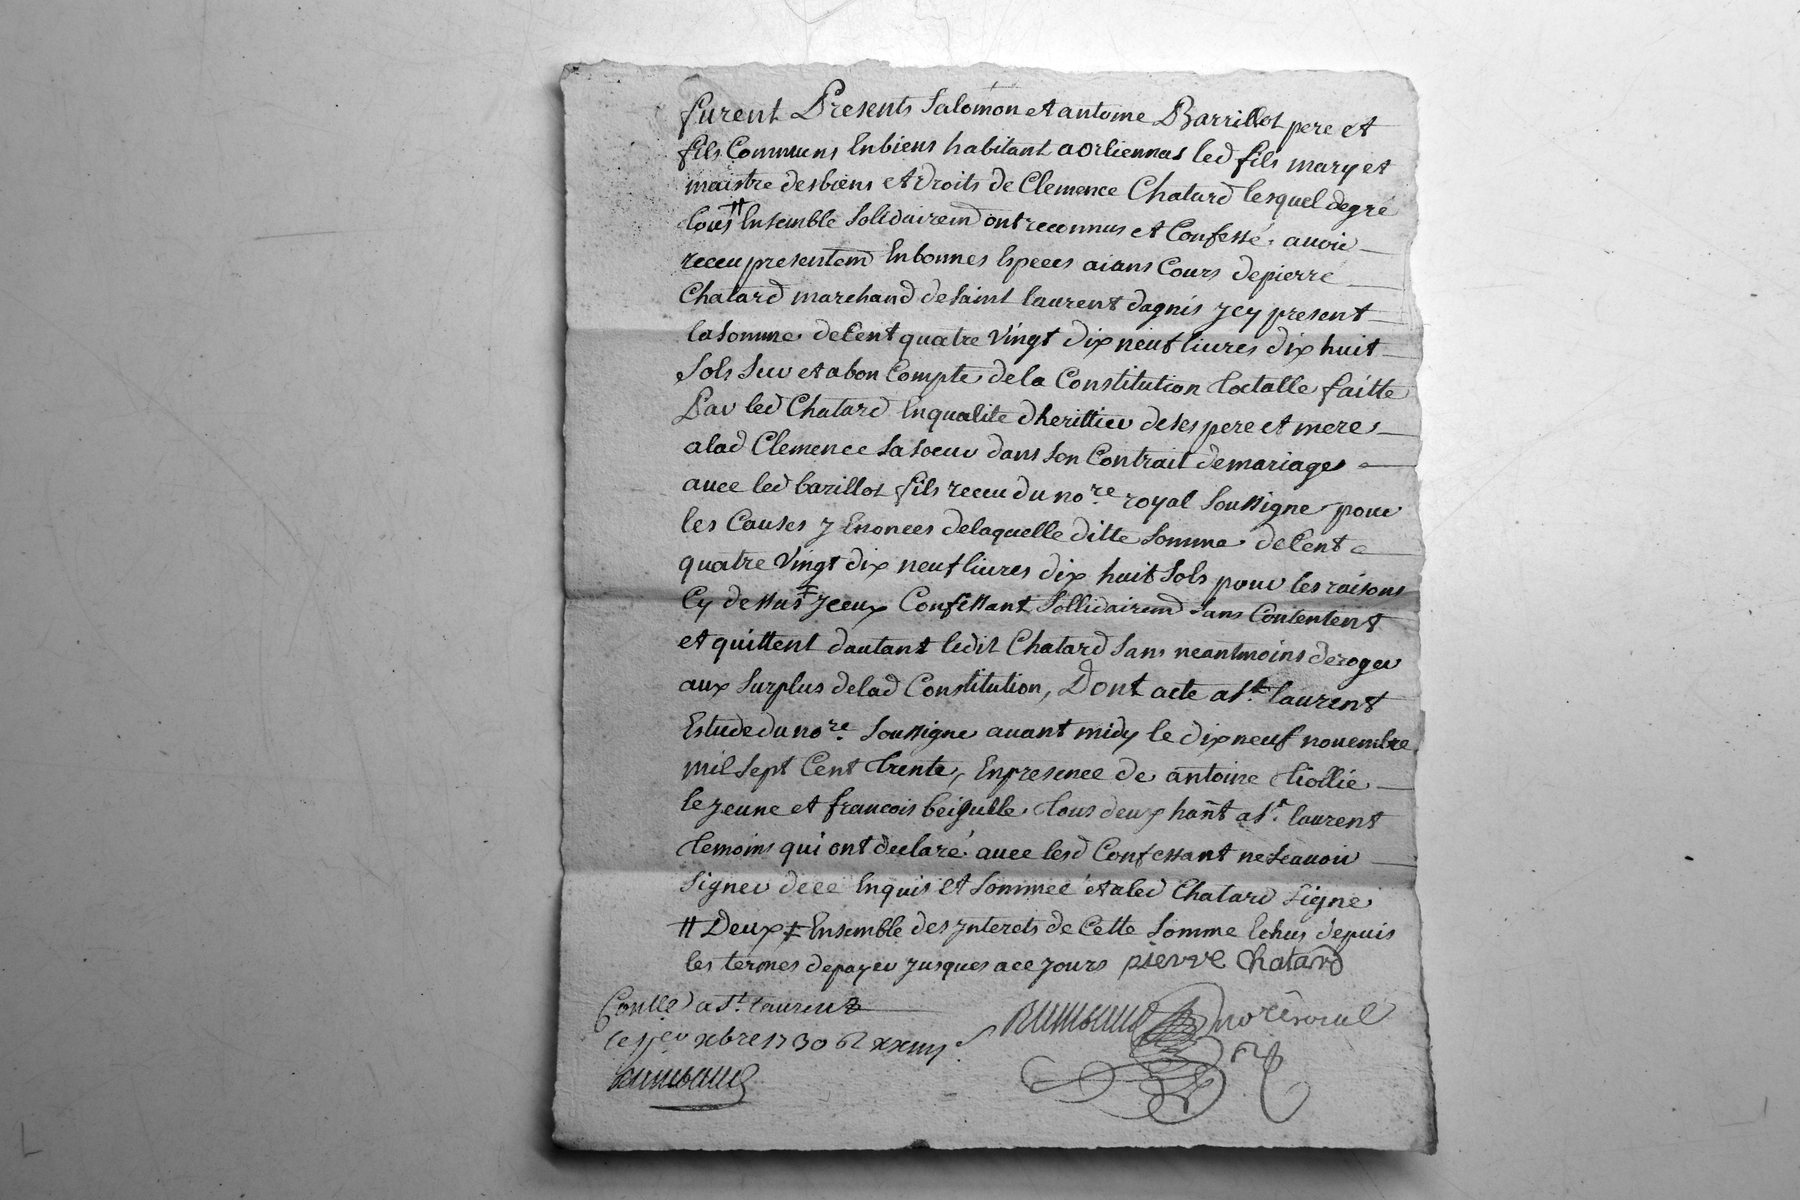 furent Presents Salomon et antoine Barrillot pere et
fils Communs En biens habitant a orliennas led fils mary et
maistre des biens et droits de Clemence Chatard lesquel de gré
tous // Ensemble Solidairemd ont reconnus et Confessé avoir
receu presentemd En bonnes Especes aians Cours de pierre
Chatard marchand de Saint laurent dagnis ycy present
la Somme de Cent quatre vingt dix neuf livres dix huit
Sols Sur et a bon Compte de la Constitution dotalle faitte
Par led Chatard En qualite dherittier de ses pere et mere
a lad Clemence Sa Soeur dans Son Contrait de mariage
avec led barillot fils receu du nore royal Soussigne pour
les Causes y Enoncees de laquelle ditte Somme de Cent
quatre vingt dix neuf livres dix huit Sols pour les raisons
Cy dessus ‡ yceux Confessant Sollidairemd Sans Contentent
et quittent dautant ledit Chatard Sans neantmoins deroger
aux Surplus de lad Constitution, Dont acte a St. laurent
Estude du nore. Soussigne avant midy le dix neuf novembre
mil Sept Cent trente, En presence de antoine
le jeune et francois tous deux hant a St. laurent
temoins qui ont declaré avec lesd Confessant ne Scavoir
Signer de ce Enquis et Sommee et a led Chatard Signe
// Deux ‡ Ensemble des ynterets de Cette Somme Echus depuis
les termes de payer jusques a ce jours pierre Chatard
a St laurent nore royal
le xbre 1730